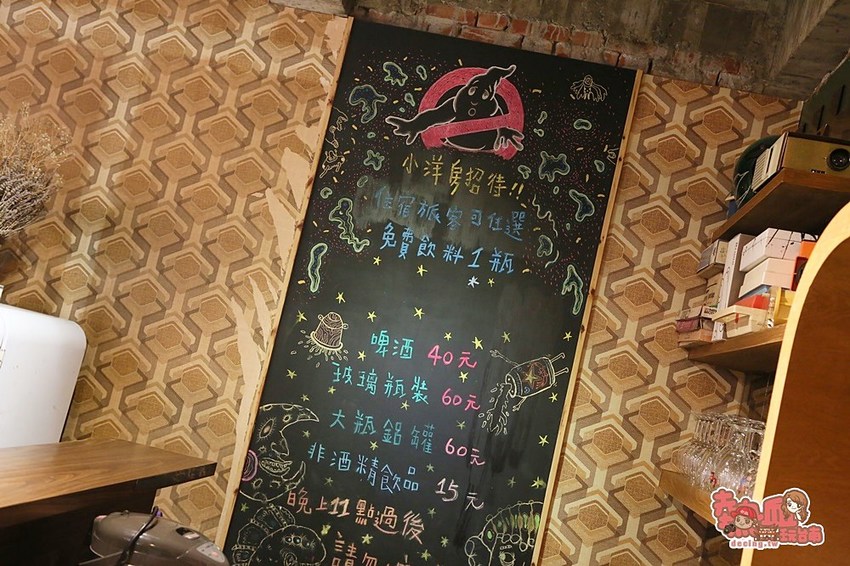 小洋房招待!!
住宿旅客可任選
免費飲料1瓶
啤酒 40元
玻璃瓶裝 60元
大瓶鋁罐 60元
非酒精飲品 15元
晚上11點過後
請勿
玩台南
decing.tw